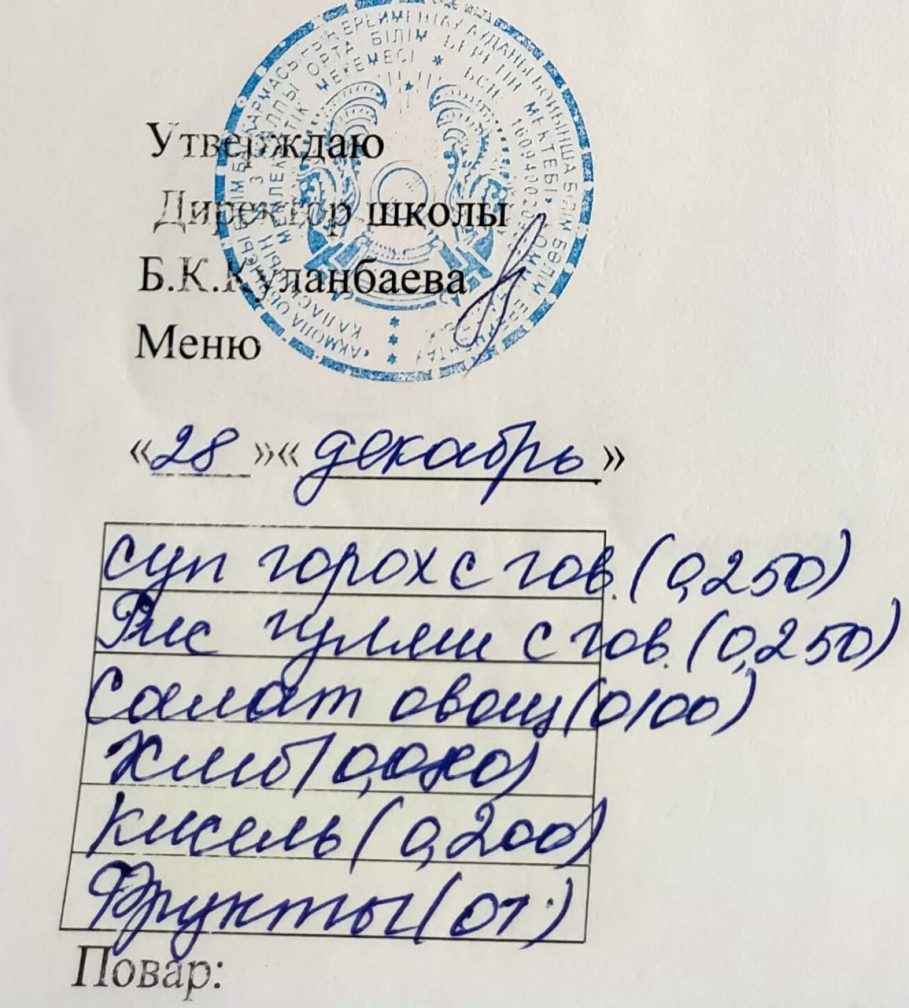 Утверждаю
Директор школы
Б.К.Куланбаева
Меню
«28»«декабрь»
суп горох с гов. (0,250)
Рис гуляш с гов. (0,250)
Салат овощ (0,100)
Хлеб (0,080)
Кисель (0,200)
Фрукты (
Повар: